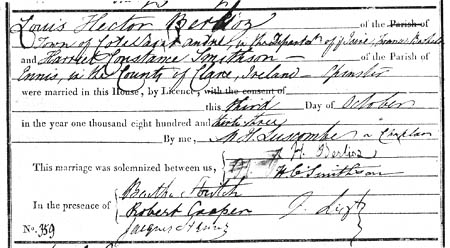 Louis Hector Berlioz of the Parish of
Town of Cote Saint André, in the Department of Isere, France Bachelor
and Harriet Constance Smithson of the Parish of
Ennis, in the County of Clare, Ireland - Spinster
were married in this House, by Licence, with the consent of
this third Day of October
in the year one thousand eight hundred and thirty three
By me, M H Luscombe a Chaplain
This marriage was solemnized between us, H. Berlioz
H C Smithson
In the presence of
Bertha
Robert Cooper F. Liszt
Jacques Henry
No. 359